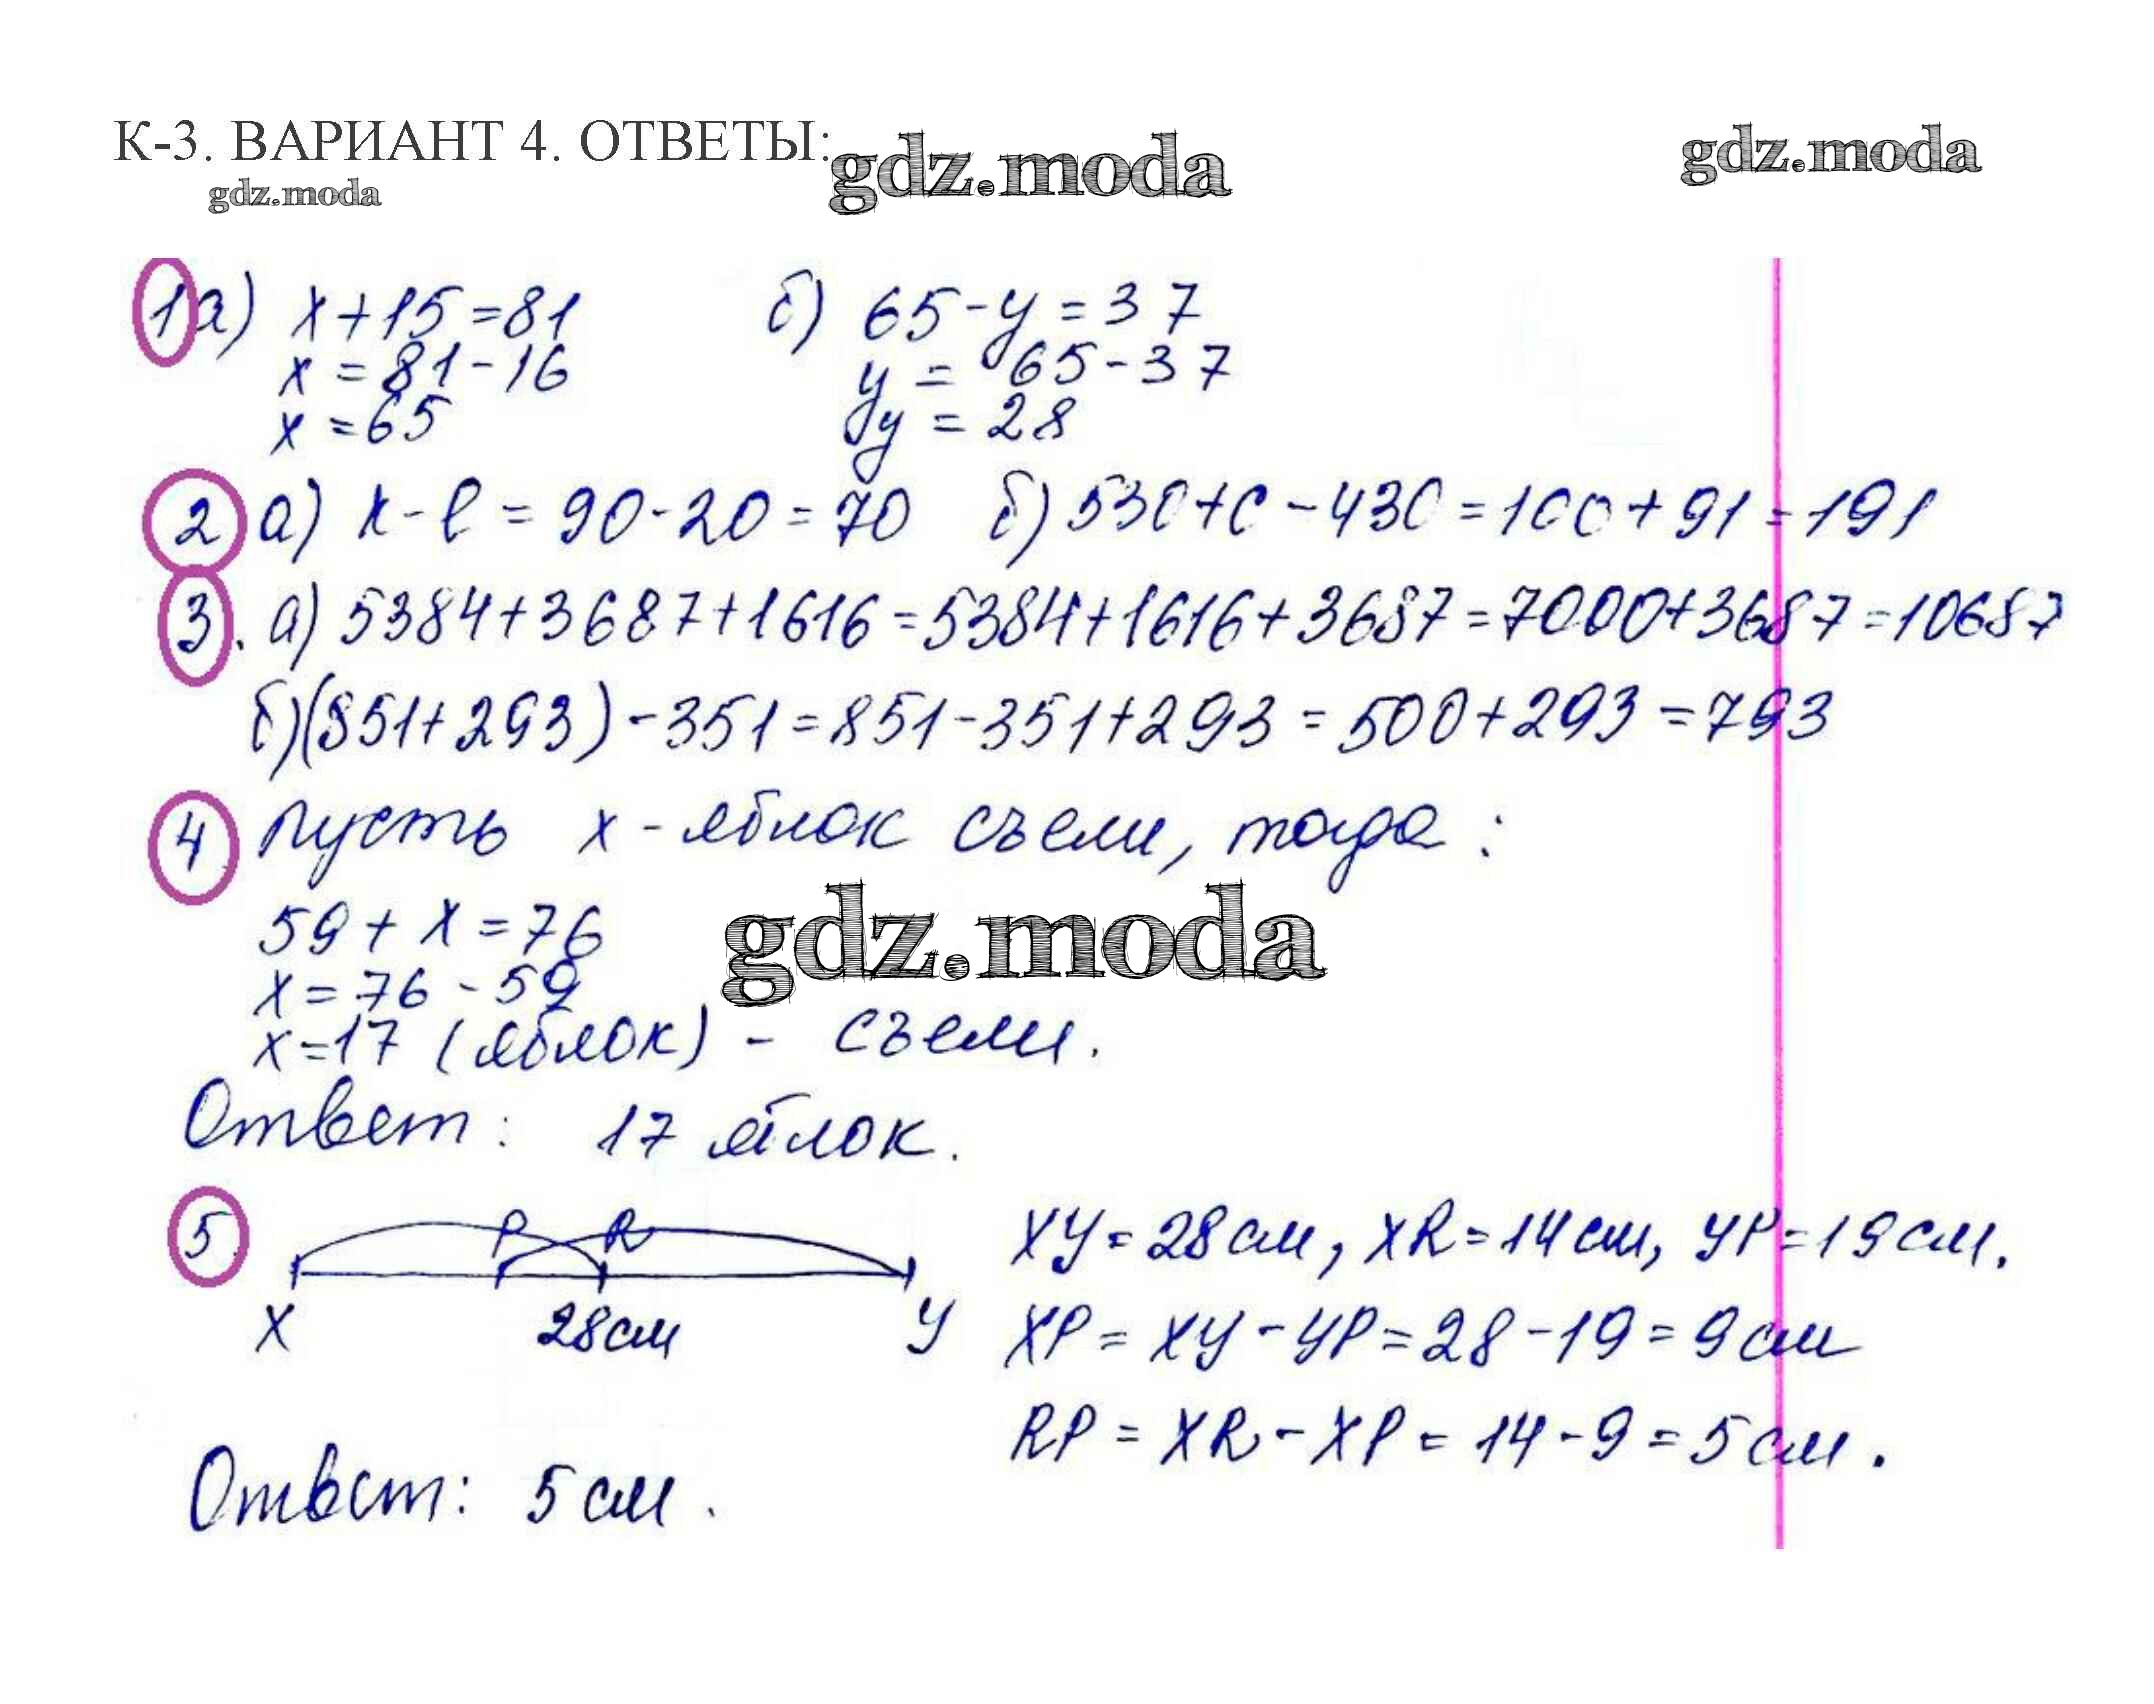 К-3. ВАРИАНТ 4. ОТВЕТЫ:
gdz.moda
gdz.moda
gdz.moda
1 а) x+15=81 б) 65-y=37
x=81-16 y=65-37
x=65 y=28
2 а) k-l=90-20=70 б) 530+c-430=100+91=191
3. а) 5384+3687+1616=5384+1616+3687=7000+3687=10687
б)(851+293)-351=851-351+293=500+293=793
4 Пусть x-яблок съели, тогда:
59+x=76
gdz.moda
x=76-59
x=17 (яблок) - съели.
Ответ: 17 яблок.
5 P R XY=28см, XR=14см, YP=19см.
X 28см Y XP=XY-YP=28-19=9см
RP=XR-XP=14-9=5см.
Ответ: 5см.